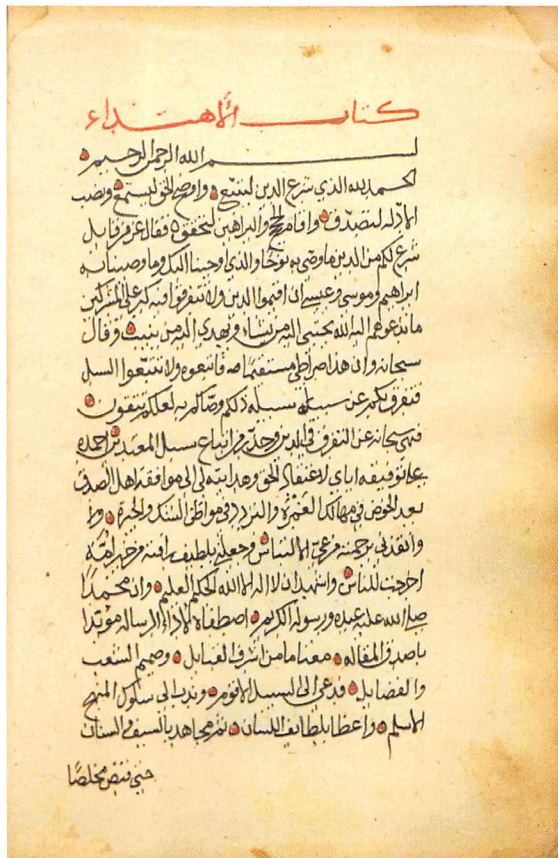 كتاب الاهتداء
بسم الله الرحمن الرحيم
الحمد لله الذي شرع الدين ليتبع واوضح الحق ليستمع ونصب
الادلة لتصدق واقام الحج والبراهين لتحقق فقال عز من قايل
شرع لكم من الدين ما وصى به نوحا والذي اوحينا اليك وما وصينا به
ابراهيم وموسى وعيسى ان اقيموا الدين ولا تتفرقوا فيه كبر على المشركين
ما تدعوهم اليه الله يجتبي اليه من يشاء ويهدي اليه من ينيب وقال
سبحانه وان هذا صراطي مستقيما فاتبعوه ولا تتبعوا السبل
فتفرق بكم عن سبيله ذلكم وصاكم به لعلكم تتقون
فنهى سبحانه عن التفرق في الدين وحذر من اتباع سبيل المعتدين احمده
على توفيقه اياي لاعتقاد الحق وهدايته لي الى موافقة اهل الصدق
بعد الخوض في مهالك الغمرة والتردد في مواطن الشك والحيرة
وانقذني برحمته من الالتباس وجعلني بلطيف رافته من خير امة
اخرجت للناس واشهد ان لا اله الا الله الحكيم العليم وان محمدا
صلى الله عليه عبده ورسوله الكريم اصطفاه لاداء الرسالة مؤيدا
باصدق المقالة من اشرف القبايل وصميم الشعب
والفضايل فدعى الى السبيل الاقوم وندب الى سلوك المنهج
الاسلم واعظا بلطايف اللسان ثم مجاهد بالسيف والسنان
حتى قبض مخلصا